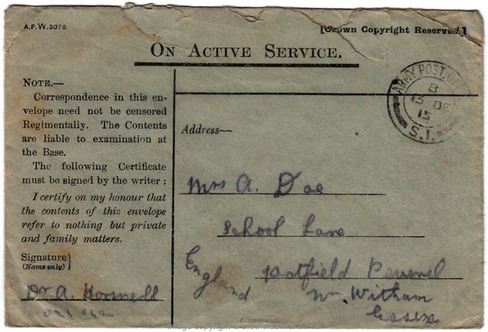 A.F.W. 3078.
[Crown Copyright Reserved.]
ON ACTIVE SERVICE.
NOTE.—
Correspondence in this en-
velope need not be censored
Regimentally. The Contents
are liable to examination at
the Base.
The following Certificate
must be signed by the writer :
I certify on my honour that
the contents of this envelope
refer to nothing but private
and family matters.
Signature
(Name only)
A. Horswell
ARMY POST
B
13 DE
15
S.1
Address—
Mrs A. Doe
School Lane
Hatfield Peverel
England
Nr. Witham
Essex